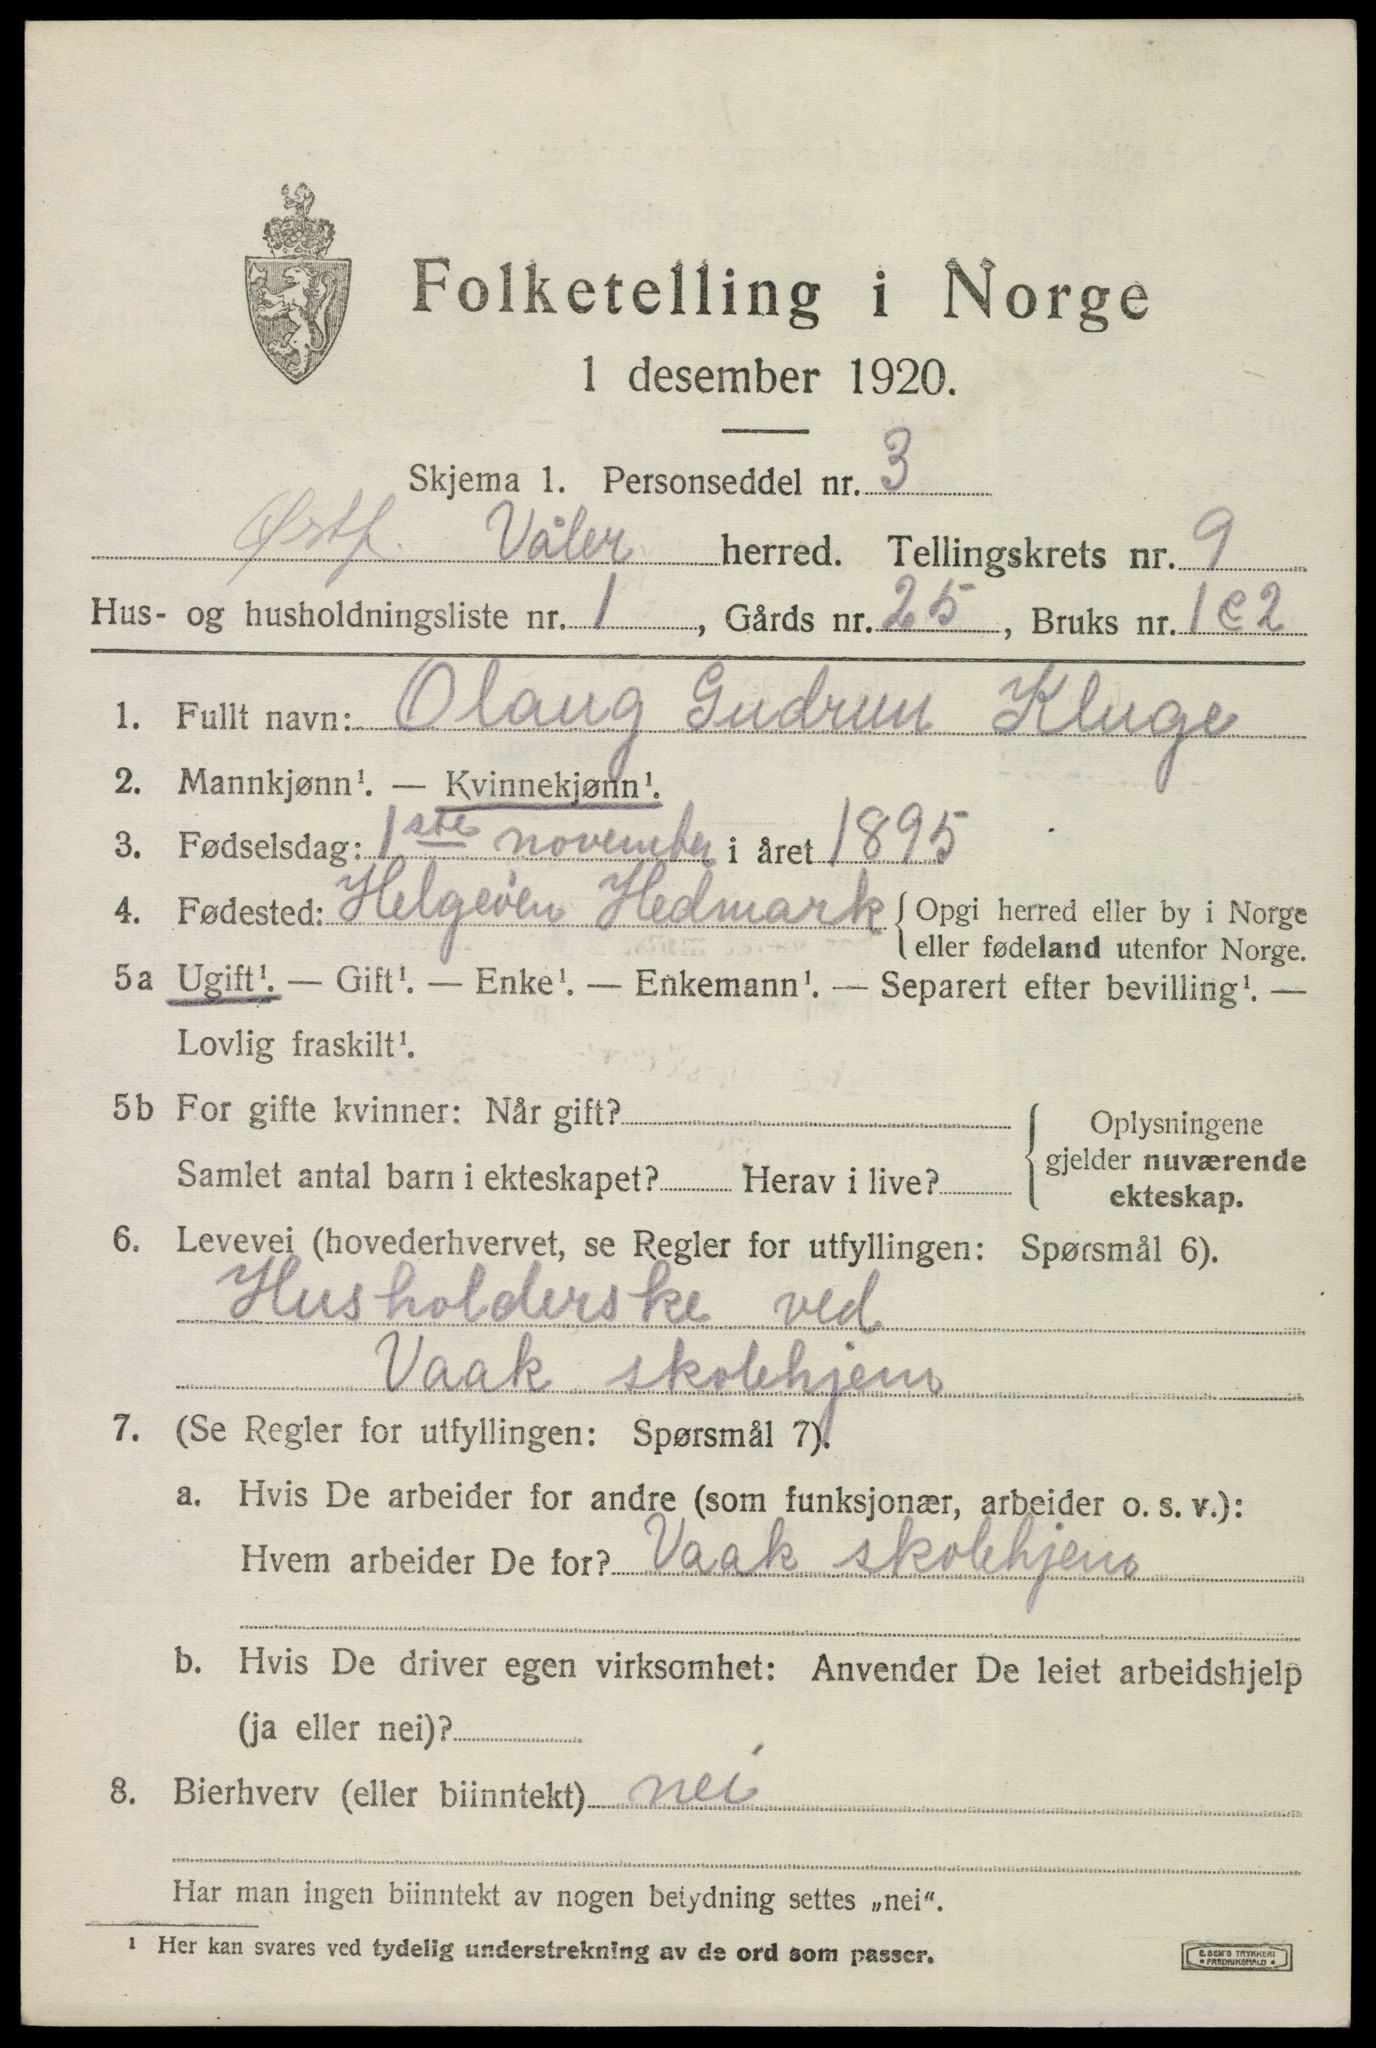 Folketelling i Norge
1 desember 1920.
Skjema 1. Personseddel nr. 3
Østf. Våler herred. Tellingskrets nr. 9
Hus- og husholdningsliste nr. 1, Gårds nr. 25, Bruks nr. 1 & 2
1. Fullt navn: Olaug Gudrun Kluge
2. Mannkjønn¹. — Kvinnekjønn¹.
3. Fødselsdag: 1ste november i året 1895
4. Fødested: Helgeöen Hedmark { Opgi herred eller by i Norge
eller fødeland utenfor Norge.
5a Ugift¹. — Gift¹. — Enke¹. — Enkemann¹. — Separert efter bevilling¹. —
Lovlig fraskilt¹.
5b For gifte kvinner: Når gift? { Oplysningene
gjelder nuværende
Samlet antal barn i ekteskapet? Herav i live? ekteskap.
6. Levevei (hovederhvervet, se Regler for utfyllingen: Spørsmål 6).
Husholderske ved
Vaak skolehjem
7. (Se Regler for utfyllingen: Spørsmål 7).
a. Hvis De arbeider for andre (som funksjonær, arbeider o. s. v.):
Hvem arbeider De for? Vaak skolehjem
b. Hvis De driver egen virksomhet: Anvender De leiet arbeidshjelp
(ja eller nei)?
8. Bierhverv (eller biinntekt) nei
Har man ingen biinntekt av nogen betydning settes „nei“.
¹ Her kan svares ved tydelig understrekning av de ord som passer.
E. SEM'S TRYKKERI
• FREDRIKSHALD •